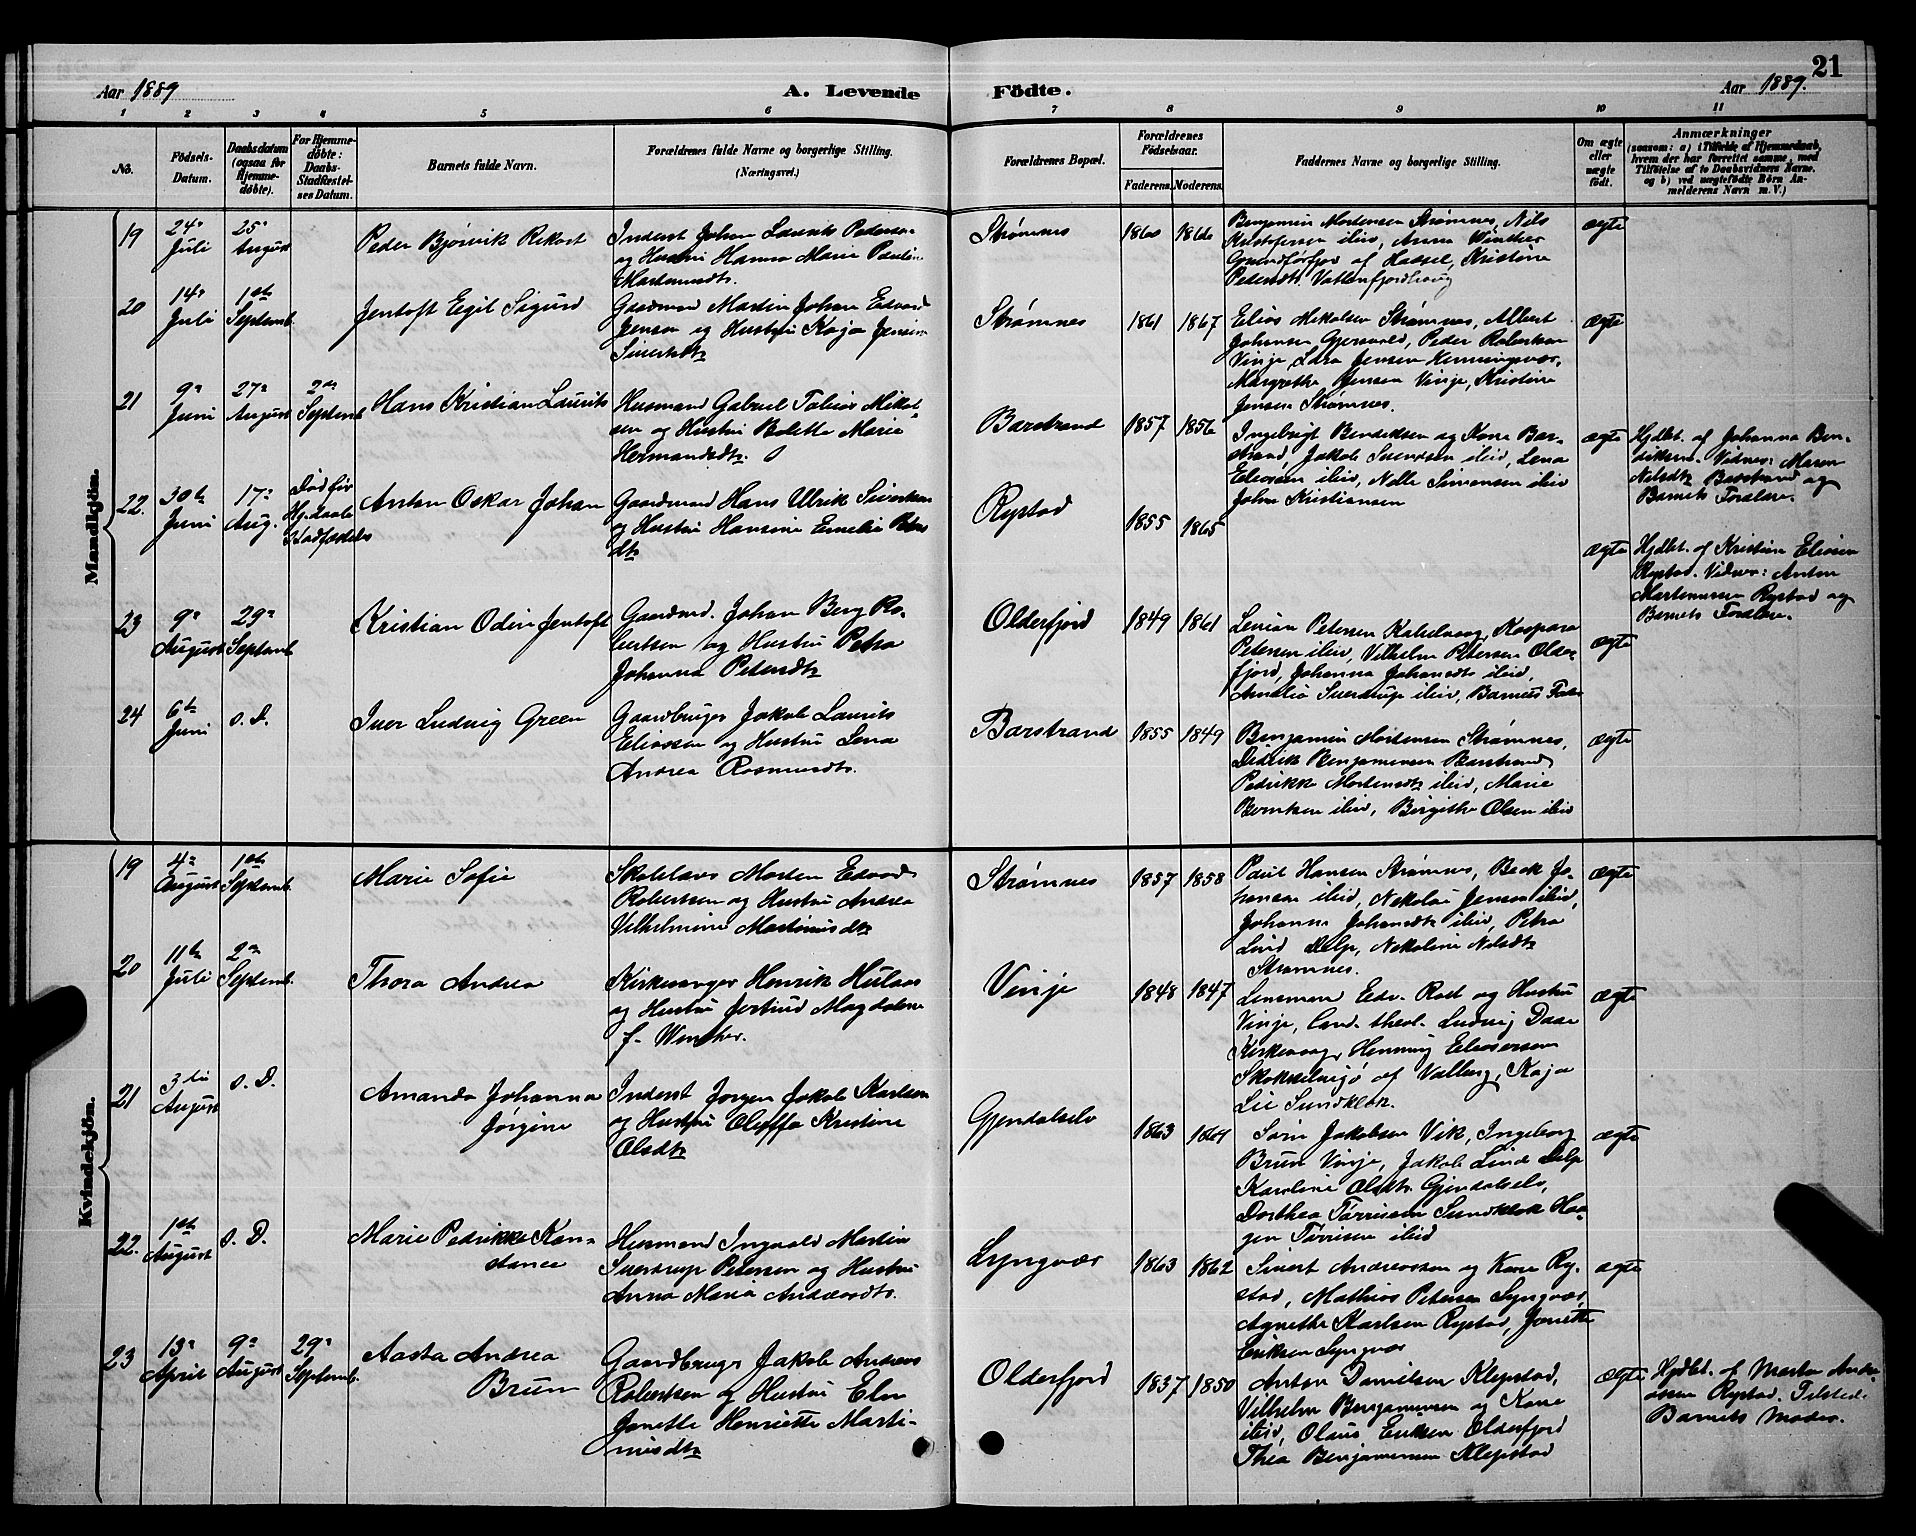 21
Aar 1889
A. Levende
Födte.
Aar 1889.
1 2 3 4 5 6 7 8 9 10 11
No.
Födsels-Datum.
Daabsdatum (ogsaa for Hjemme-döbte).
For Hjemme-döbte: Daabs-Stadfæstel-ses Datum.
Barnets fulde Navn.
Forældrenes fulde Navne og borgerlige Stilling.
(Næringsvei.)
Forældrenes Bopæl.
Forældrenes Födselsaar.
Faderens. Moderens.
Faddernes Navne og borgerlige Stilling.
Om ægte eller uægte födt.
Anmærkninger
(saasom: a) i Tilfælde af Hjemmedaab,
hvem der har forrettet samme, med
Tilföielse af to Daabsvidners Navne.
og b) ved uægtefödte Börn An-
melderens Navn m. V.)
Mandkjön.
19 24de Juli 25de August
Peder Bjørvik Rekart
Inderst Johan Laurits Pedersen
og Hustru Hanna Marie Pauline
Martensdtr.
Strømnes 1860 1866
Benjamin Mortensen Strømnes, Nils
Kristofersen ibid, Anna Winther
Grundforfjor af Hassel, Kristine
Pedersdtr. Vattenfjordhaug
ægte
20 14de Juli 1ste Septemb.
Jentoft Egil Sigurd
Gaardmand Martin Johan Edvard
Jensen og Hustru Kaja Jensine
Sivertsdtr
Strømnes 1861 1867
Elias Mikalsen Strømnes, Albert
Johansen Gjersvold, Peder Robertsen
Vinje, Lara Jensen Henningsvær,
Margrethe Jensen Vinje, Kristine
Jensen Strømnes.
ægte
21 9de Juni 27de August 2den Septemb
Hans Kristian Laurits
Husmand Gabriel Tobias Mikal-
sen og Hustru Bolette Marie
Hermansdtr.
Barstrand 1857 1856
Ingebrigt Bendiksen og Kone Bar-
strand, Jakob Svendsen ibid, Lena
Eliassen ibid, Nelle Simensen ibid
John Kristiansen
ægte
Hjdbt. af Johanna Ben-
diksen. Vidner: Maren
Nilsdtr Barstrand og
Barnets Forældre.
22. 30te Juni 17de Aug. Død før Hj.daabs Stadfæstelse
Anton Oskar Johan
Gaardmand Hans Ulrik Sivertsen
og Hustru Hansine Emelie Peters
dtr
Rystad 1855 1865
ægte
Hjdbt. af Kristian Eliasen
Rystad. Vidner: Anton
Martinussen Rystad og
Barnets Forældre.
23 9de August 29de Septemb
Kristian Odin Jentoft
Gaardmd. Johan Berg Ro-
bertsen og Hustru Petra
Johanna Petersdtr
Olderfjord 1849 1861
Lenian Petersen Kabelvaag, Kaspara
Petersen ibid, Vilhelm Petersen Older-
fjord, Johanna Johansdtr ibid,
Amalia Sverdrup ibid, Barnets Fader
ægte
24 6te Juni s. D.
Iver Ludvig Green
Gaardbruger Jakob Laurits
Eliassen og Hustru Lena
Andrea Rasmusdtr.
Barstrand 1855 1849
Benjamin Mortensen Strømnes,
Didrik Benjaminsen Barstrand
Pedrikke Mortensdtr ibid, Marie
Berntsen ibid, Bergithe Olsen ibid
ægte
Kvindekjön.
19 4de August 1ste Septemb.
Marie Sofie
Skolelærer Morten Edvard
Robertsen og Hustru Andrea
Vilhelmine Martinusdtr
Strømnes 1857 1858
Paul Hansen Strømnes, Beck Jo-
hansen ibid, Nekolai Jensen ibid,
Johanna Johansdtr ibid, Petra
Lind Delp, Nekoline Nilsdtr
Strømnes.
ægte
20 11te Juli 2den Septemb.
Thora Andrea
Kirkesanger Henrik Hulaas
og Hustru Jertrud Magdalene
f. Winther.
Vinje 1848 1847
Lensmand Edv. Rost og Hustru
Vinje, Cand. theol. Ludvig Daae
Kirkevaag, Henning Eliasersen
Skokkelvigsjø af Valberg, Kaja
Lie Sundklak.
ægte
21 3die August s. D.
Amanda Johanna
Jørgine
Inderst Jørgen Jakob Karlsen
og Hustru Oluffa Kristine
Olsdtr
Gjendalselv 1863 1864
Sørin Jakobsen Vik, Ingeborg
Brun Vinje, Jakob Lind Delp
Karoline Olsdtr. Gjendalselv,
Dorthea Tørrisen Sundklak Haa-
gen Tørrisen ibid
ægte
22. 1ste August s. D.
Marie Pedrikke Kon-
stance
Husmand Ingvald Martin
Sverdrup Petersen og Hustru
Anna Maria Andreasdtr.
Lyngvær 1863 1862
Sivert Andreassen og Kone Ry-
stad, Mathias Petersen Lyngvær,
Agnethe Karlsen Rystad, Janette
Eriksen Lyngvær
ægte
23 13de April 9de August 29de Septemb.
Aasta Andrea
Brun
Gaardbruger Jakob Andreas
Robertsen og Hustru Elen
Janette Henriette Marti-
nusdtr
Olderfjord 1837 1850
Anton Danielsen Klepstad,
Vilhelm Benjaminsen og Kone
ibid, Olaus Eriksen Olderfjord
Thea Benjaminsen Klepstad
ægte
Hjdbt. af Marta Andre-
assen Rystad. Tilstede
Barnets Moder.